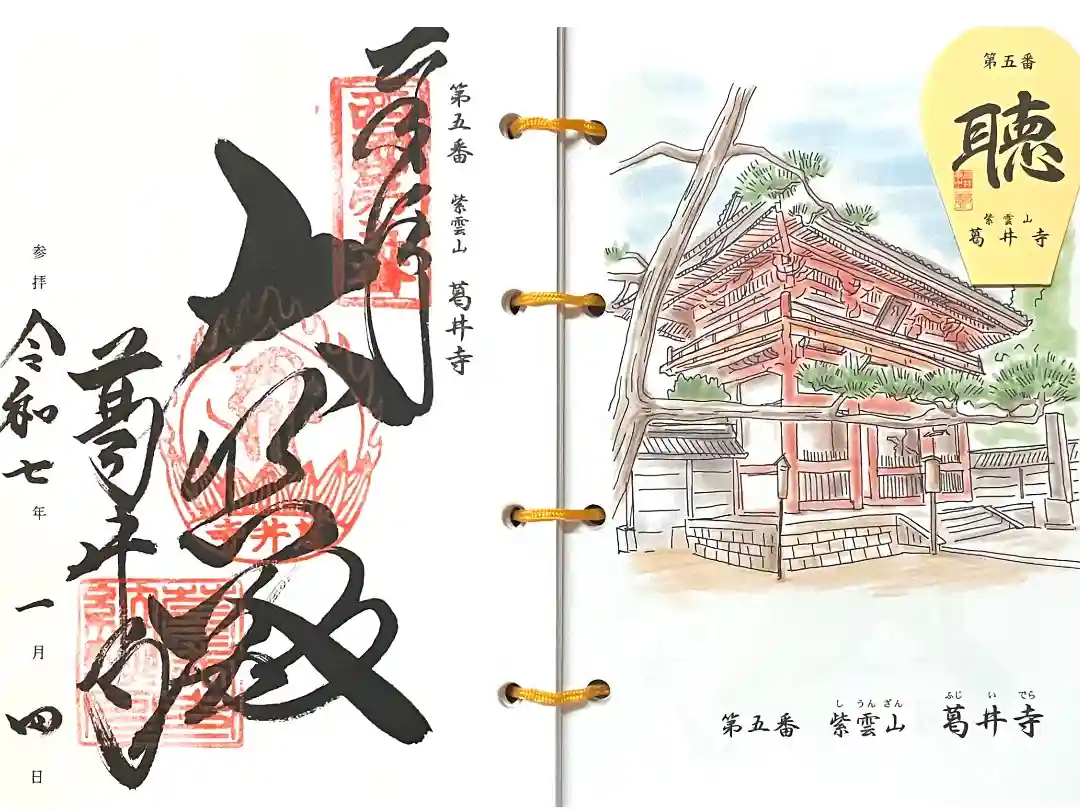 第五番 紫雲山 葛井寺
奉拝
大悲殿
葛井寺
葛井寺
参拝 令和七年 一月 四日
第五番
聴
紫雲山
葛井寺
し うん ざん ふじ い でら
第五番 紫雲山 葛井寺